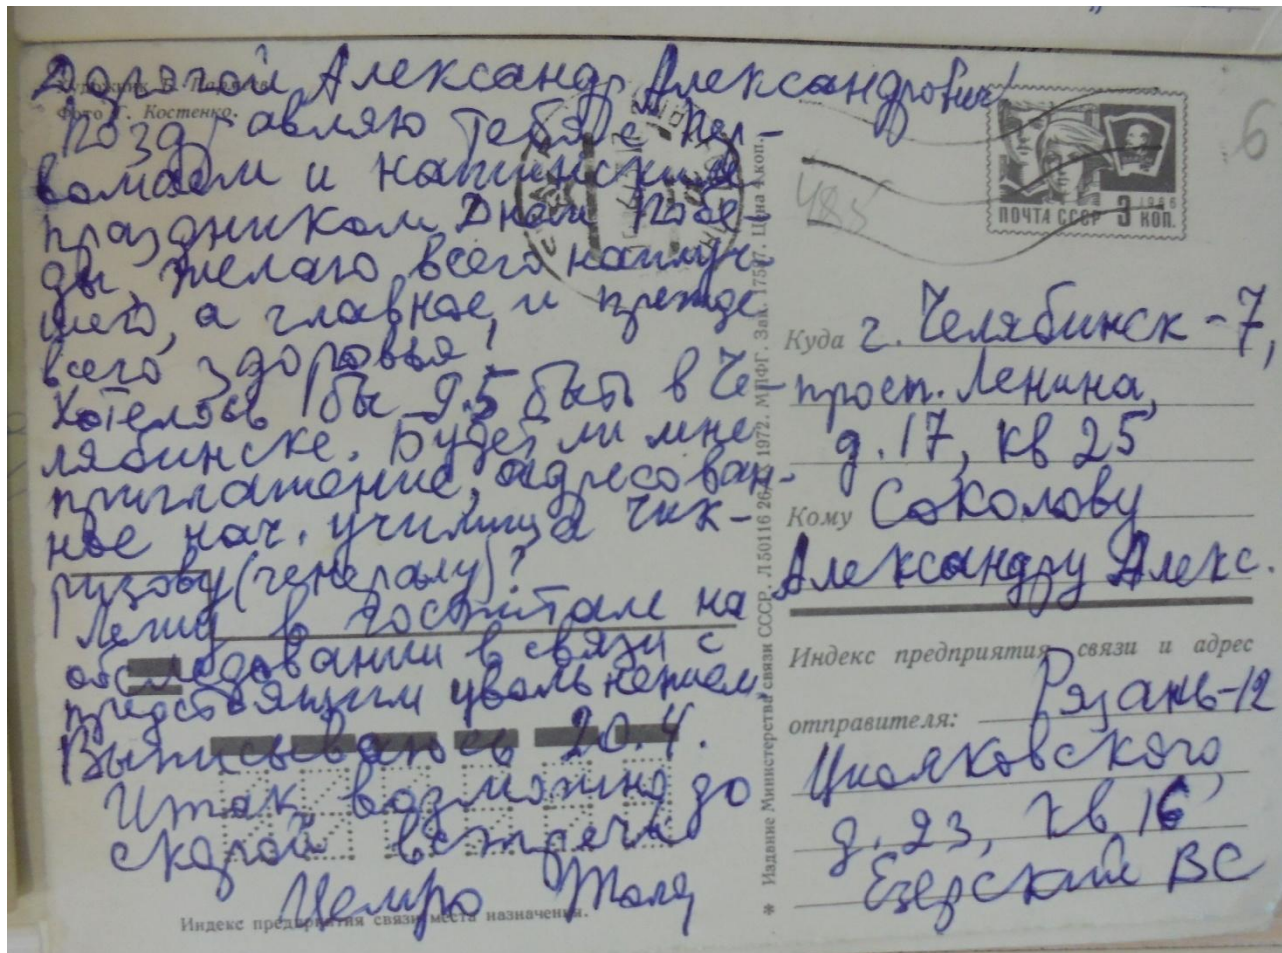 Дорогой Александр Александрович!
Художник В.
Фото Г. Костенко.
Поздравляю тебя с Пер-
вомаем и
праздником Днем Побе-
ды, желаю всего наилуч-
шего, а главное, и прежде
всего здоровья!
Хотелось бы 9.5 быть в Че-
лябинске. Будет ли мне
приглашение, адресован-
ное нач. училища Чик-
ризову (генералу)?
Лежу в госпитале на
обследовании в связи с
предстоящим увольнением.
Выписываюсь 20.4.
Итак, возможно до
скорой встречи
Целую Толя
Индекс предприятия связи места назначения.
* Издание Министерства связи СССР. Л 50116 1972. МПФГ. Зак. Цена 4 коп.
485
6
1966
ПОЧТА СССР 3 КОП.
Куда г. Челябинск-7,
просп. Ленина,
д. 17, кв 25
Кому Соколову
Александру Алекс.
Индекс предприятия связи и адрес
отправителя: Рязань-12
Циолковского,
д. 23, кв 16
Езерский ВС